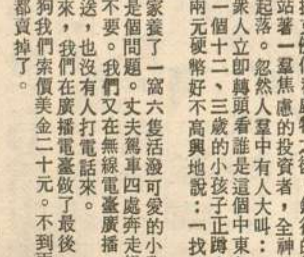 站著一羣焦慮的投資者，全神
起落。忽然人羣中有人大叫：
衆人立即轉頭看誰是這個中東
一個十二、三歲的小孩子正蹲
兩元硬幣好不高興地說：「找
家養了一窩六隻活潑可愛的小
是個問題。丈夫駕車四處奔走
不要。我們又在無線電臺廣播
送，也沒有人打電話來。
來，我們在廣播電臺做了最後
狗我們索價美金二十元。不到
都賣掉了。